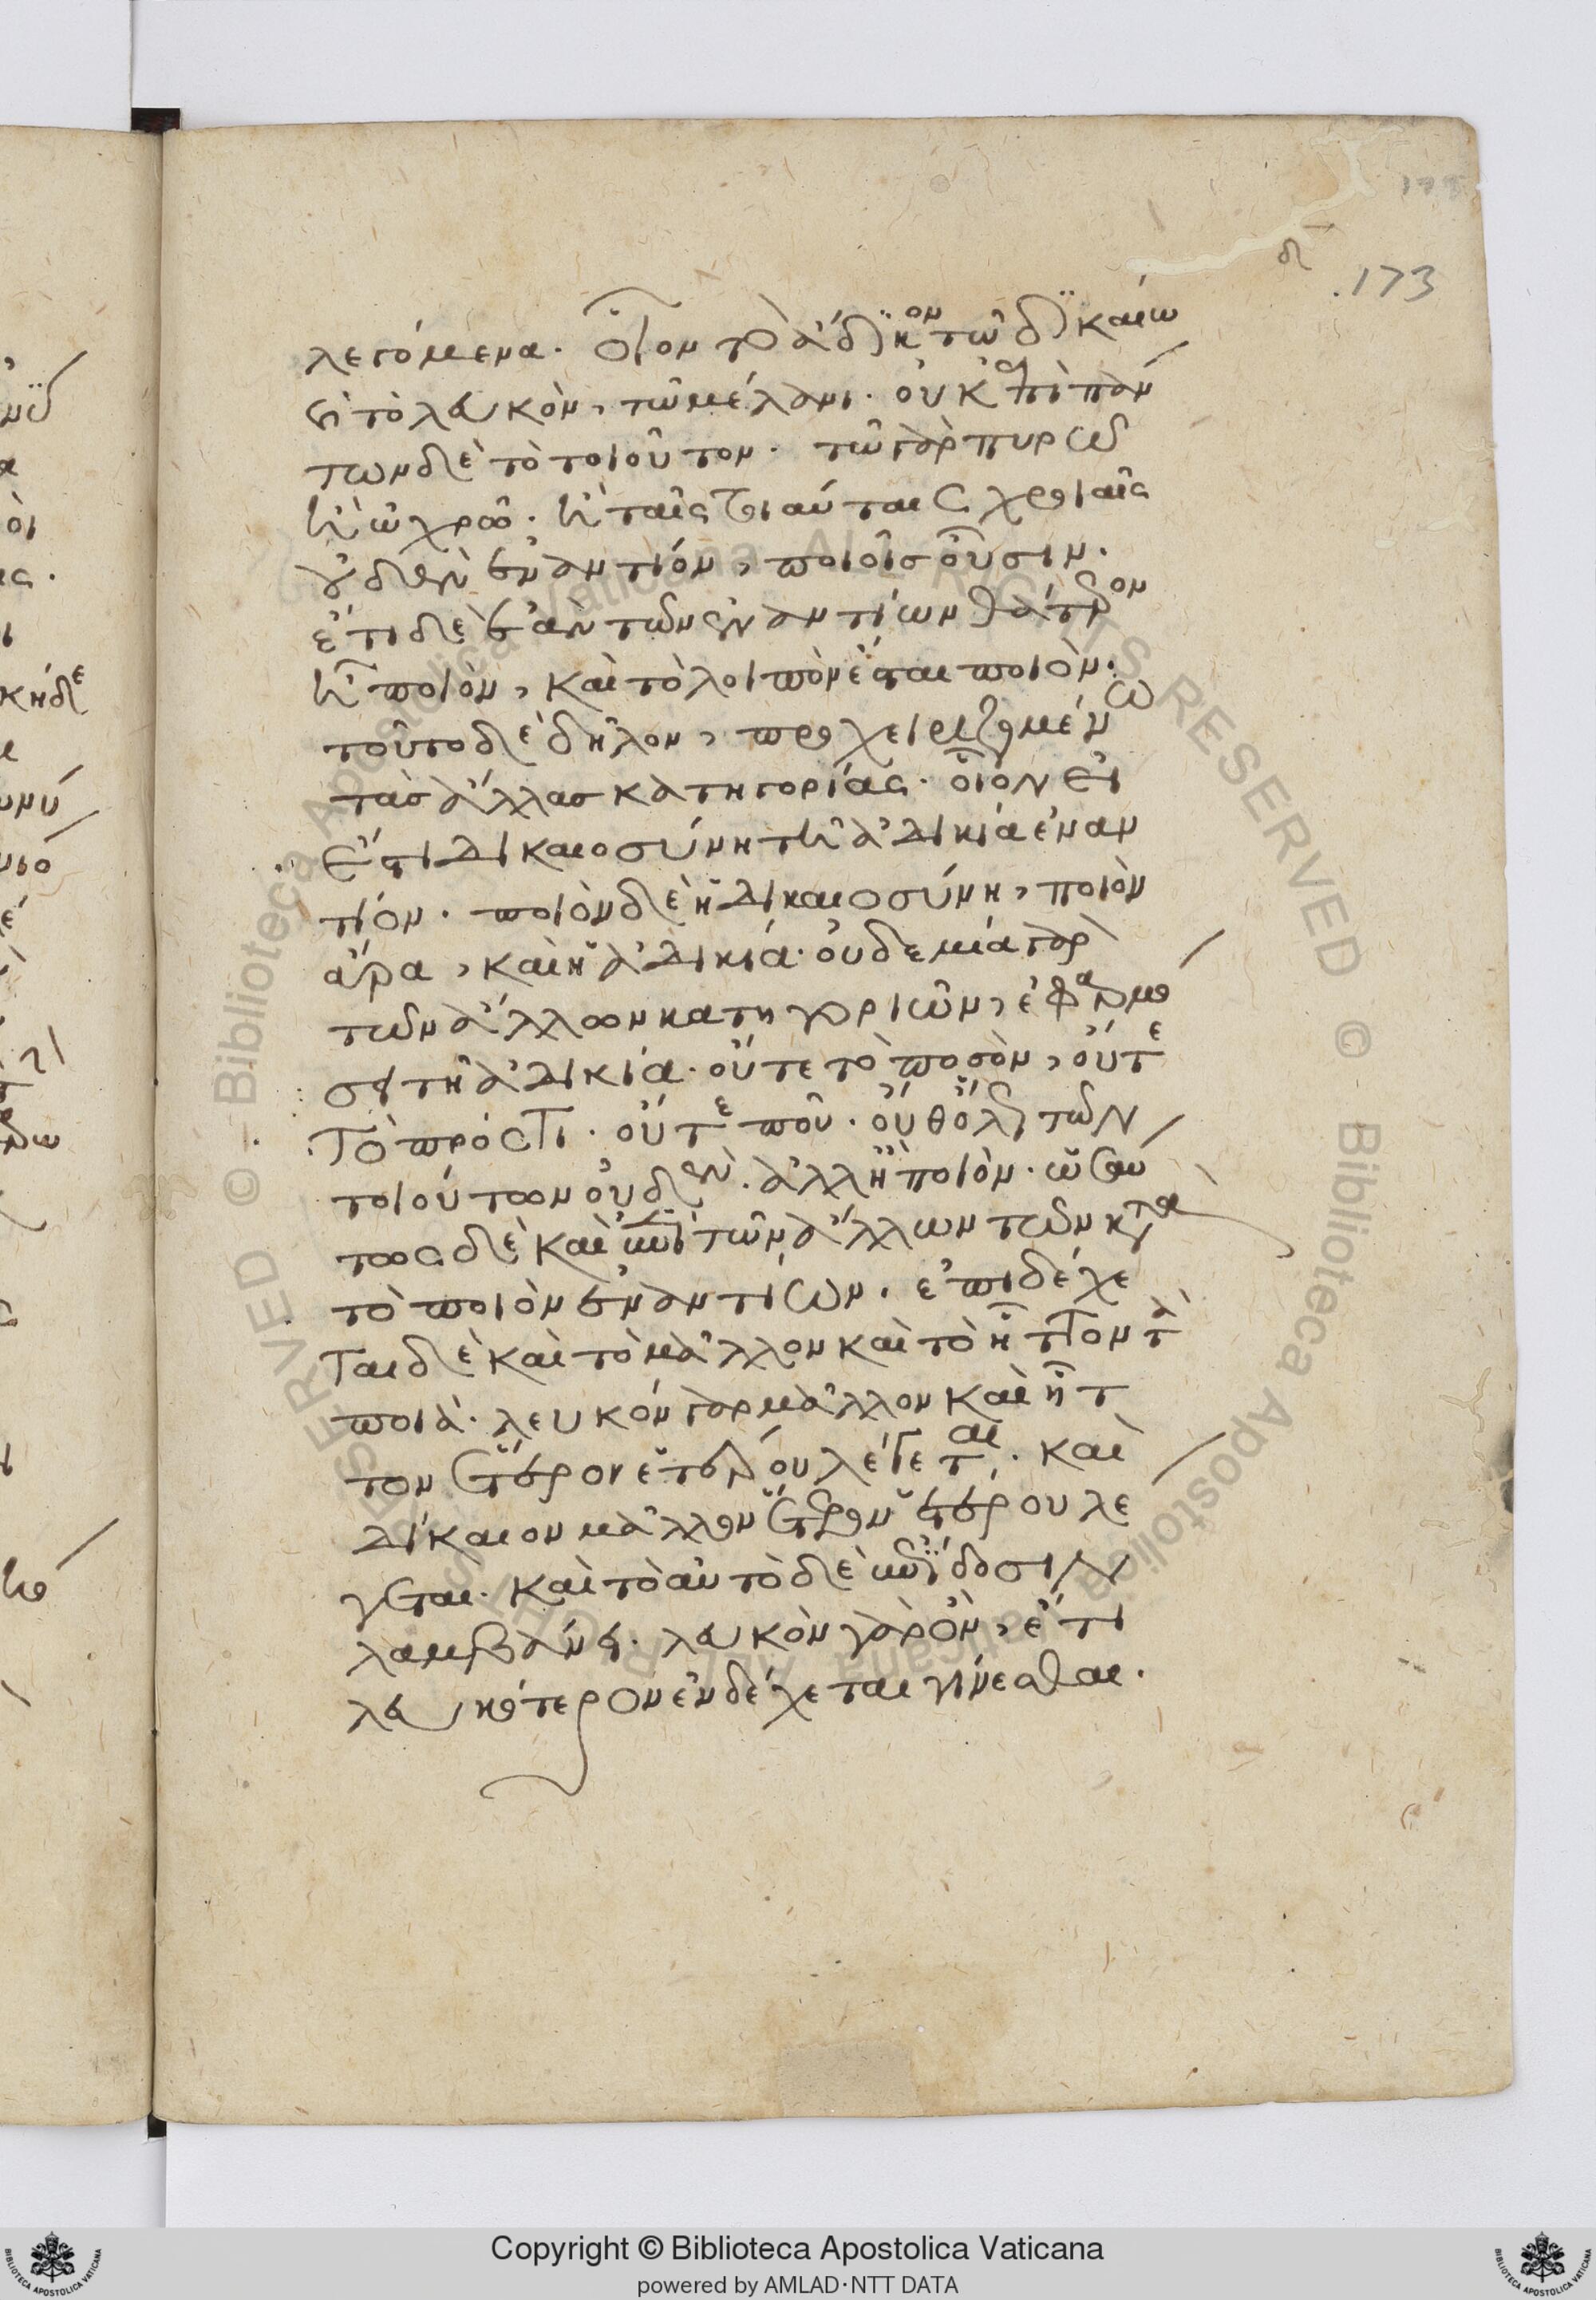 173
λεγόμενα. οἷον τὸ ἄδικον τῶ δικαίω
καὶ τὸ λευκὸν, τῶ μέλανι. οὐκ ἐπὶ πάν
των δὲ τὸ τοιοῦτον. τῶ γὰρ πυρρῶ
ἢ ὠχρῶ. ἢ ταῖς τοιαύταις χροιαῖς
οὐδὲν ἐναντίον, ποιοῖς οὖσιν.
ἔτι δὲ ἐὰν τῶν ἐναντίων θάτερον
ἦ ποιὸν, καὶ τὸ λοιπὸν ἔσται ποιὸν.
τοῦτο δὲ δῆλον, προχειριζομένω
τὰς ἄλλας κατηγορίας. οἷον εἰ
ἔστι δικαιοσύνη τῆ ἀδικία ἐναν
τίον. ποιὸν δὲ ἡ δικαιοσύνη, ποιὸν
ἄρα, καὶ ἡ ἀδικία. οὐδεμία γὰρ
τῶν ἄλλων κατηγοριῶν, ἐφαρμό
σει τῆ ἀδικία. οὔτε τὸ ποσὸν, οὔτε
τὸ πρός τι. οὔτε ποῦ. οὔθ' ὅλως τῶν
τοιούτων οὐδὲν. ἀλλ' ἢ ποιὸν. ὡσαύ
τως δὲ καὶ ἐπὶ τῶν ἄλλων τῶν κατὰ
τὸ ποιὸν ἐναντίων. ἐπιδέχε
ται δὲ καὶ τὸ μᾶλλον καὶ τὸ ἧττον τὰ
ποιά. λευκὸν γὰρ μᾶλλον καὶ ἧτ
τον ἕτερον ἑτέρου λέγεται. καὶ
δίκαιον μᾶλλον ἕτερον ἑτέρου λέ
γεται. καὶ τὸ αὐτὸ δὲ ἐπίδοσιν
λαμβάνει. λευκὸν γὰρ ὂν, ἔτι
λευκότερον ἐνδέχεται γίνεσθαι.
Copyright © Biblioteca Apostolica Vaticana
powered by AMLAD·NTT DATA